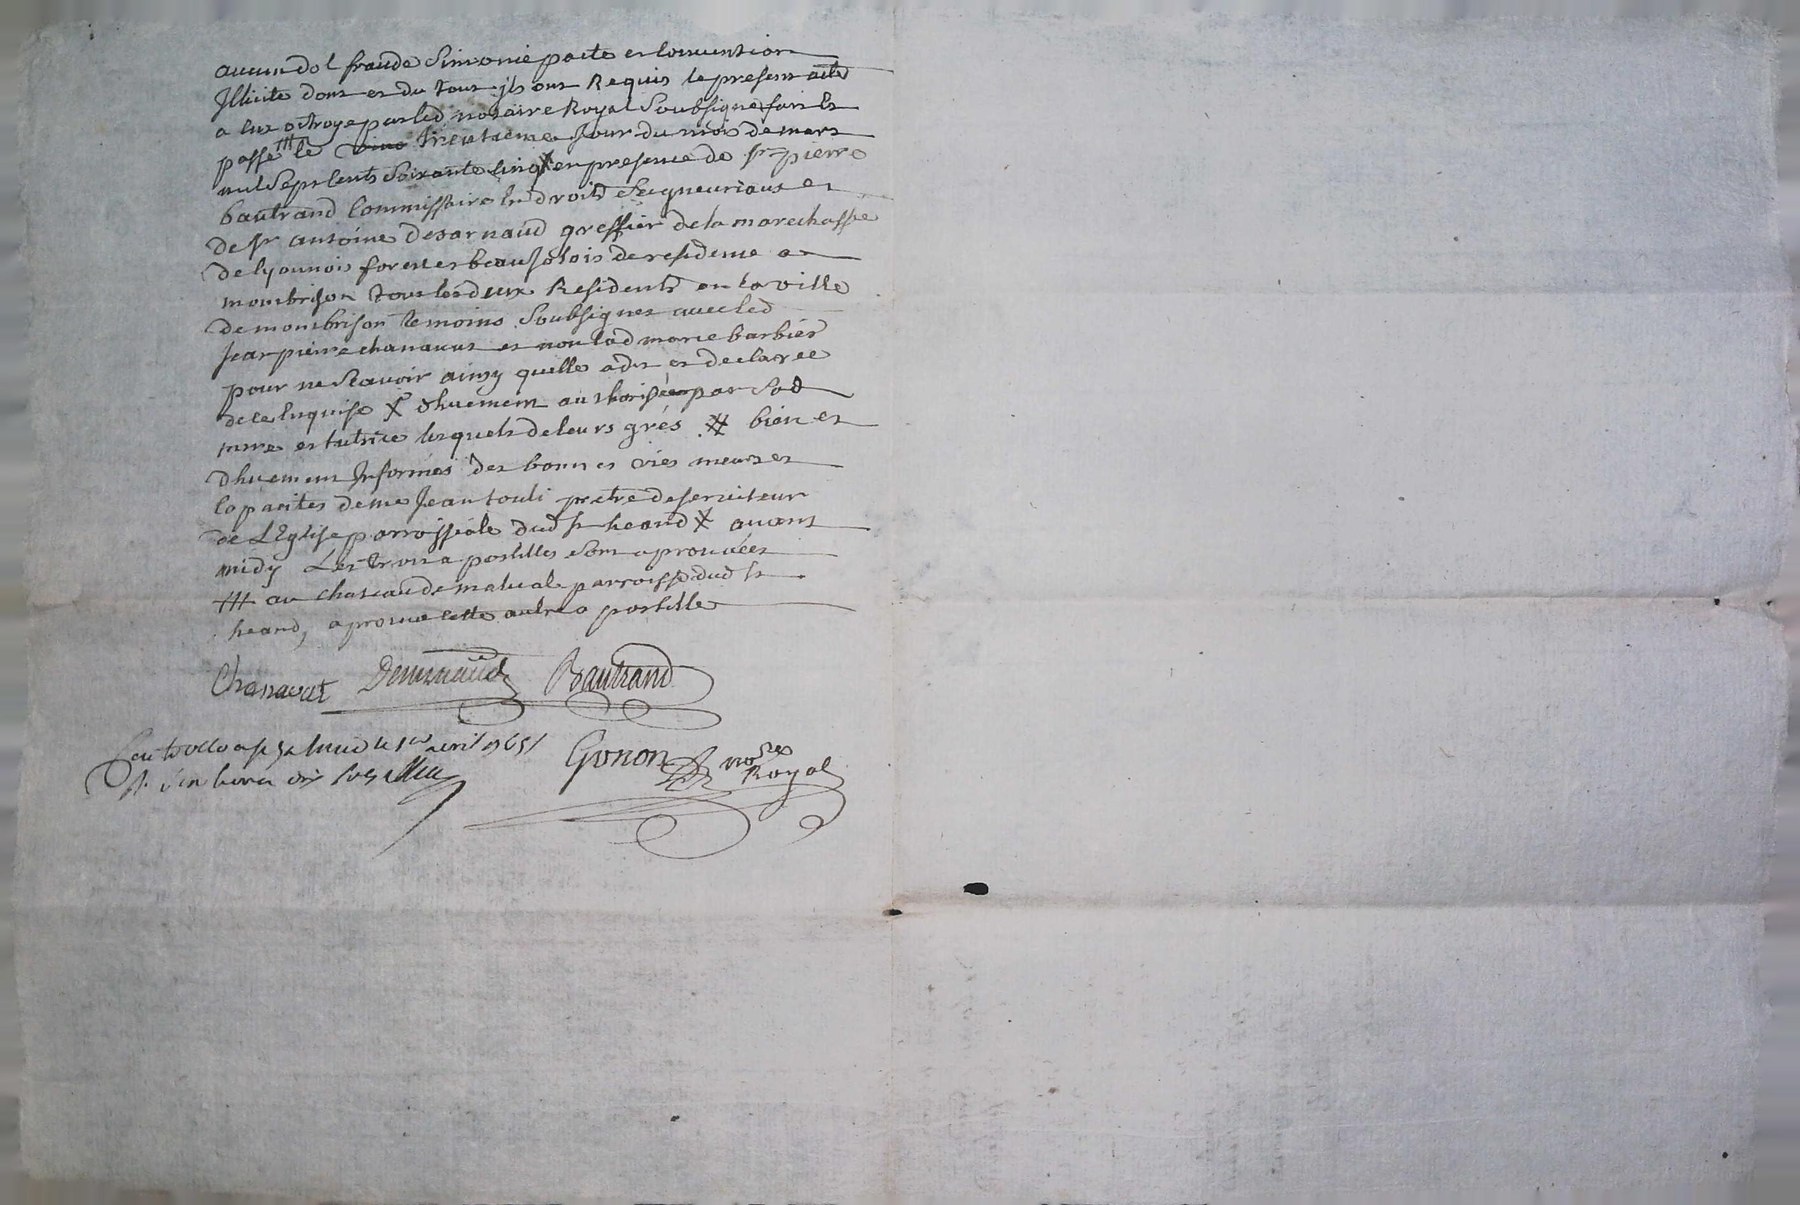 aucun dol fraude Simonie pacte et Convention
Illicite dont et du tout ils ont Requis le present acte
a Eux octroyé par led notaire Royal Soubsigné fait et
passé ⵌ le vins trentieme Jour du mois de mars
mil Sept Cents Soixante Cinq X en presence de Sr pierre
bautrand Commissaire En droits Seigneuriaux et
de Sr antoine desarnaud greffier de la marechaussée
de lyonnois forest et beaujolois de residence a
montbrison tous les deux Residents en la ville
de montbrison temoins Soubsignes avec led
Jean pierre chanavat et non lad marie barbier
pour ne Scavoir ainsy quelle a dit et declaree
de ce Enquise X dhuement authorisée par Sad
mere et tutrice lesquels de leurs grés ⵌ bien et
dhuement Informés des bonnes vies meurs et
Capacites de me Jean pretre deserviteur
de LEglise parroissiale dud St heand X avant
midy Les trois apostilles Sont aprouvées
ⵌ au chateau de malval parroisse dud St
heand, aprouve cette autre apostille
Chanavat Desarnaud Bautrand
le 1er avril 1765
Gonon nore
Royal